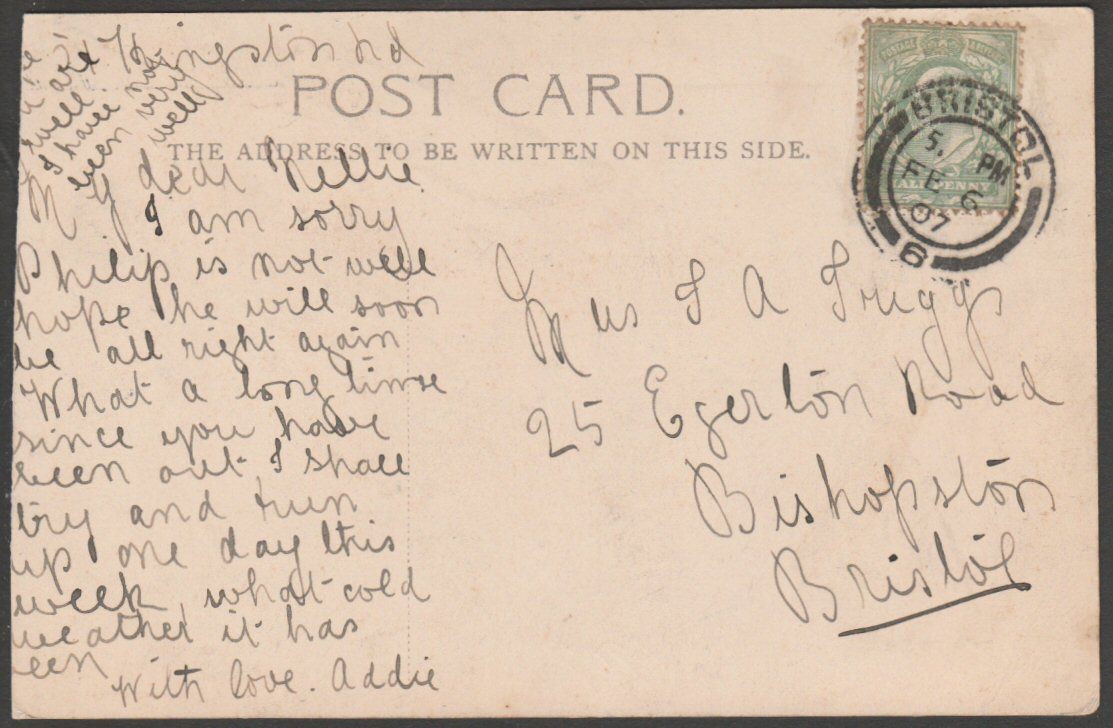 Kingston rd
POST CARD.
THE ADDRESS TO BE WRITTEN ON THIS SIDE.
My dear Nellie
I am sorry
Philip is not well
hope he will soon
be all right again
What a long time
since you have
been out, I shall
try and run
up one day this
week, what cold
weather it has
een
With love. Addie
are
well.
I have not
been very
well
POSTAGE
HALFPENNY
BRISTOL
5. PM
FE 6
07
6
Mrs S A Triggs
25 Egerton Road
Bishopston
Bristol